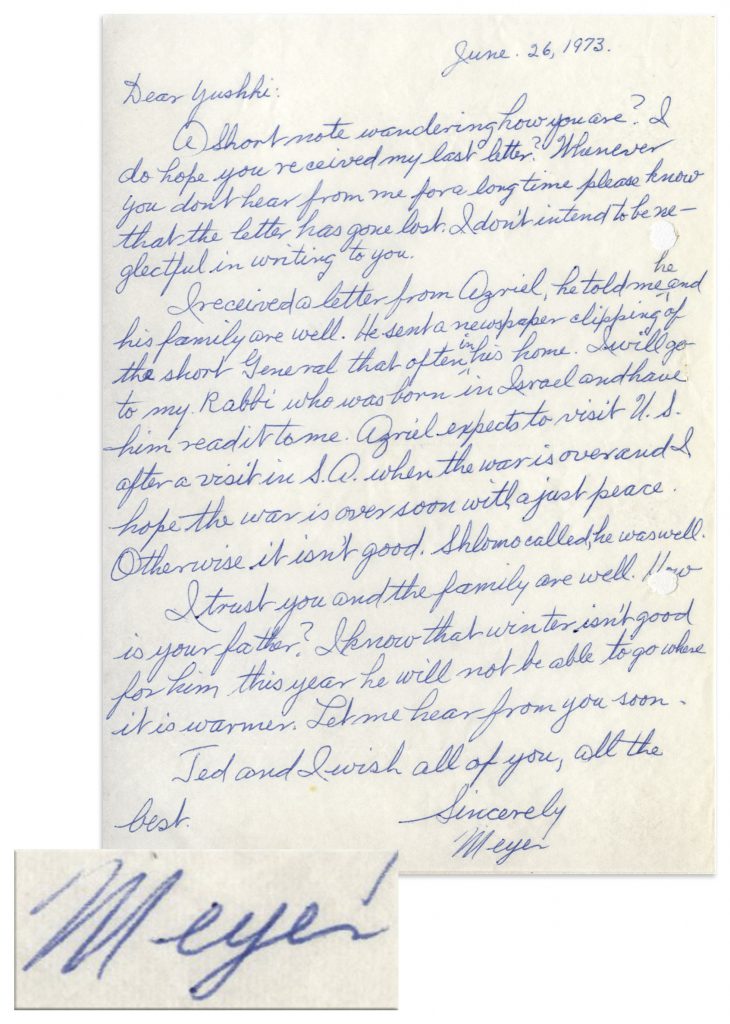 June. 26, 1973.
Dear Yushki:
A Short note wandering how you are? I
do hope you received my last letter? Whenever
you don't hear from me for a long time please know
that the letter has gone lost. I don't intend to be ne-
glectful in writing to you.
I received a letter from Azriel, he told me he and
his family are well. He sent a newspaper clipping of
the short General that often in his home. I will go
to my Rabbi who was born in Israel and have
him read it to me. Azriel expects to visit U.S.
after a visit in S.A. when the war is over and I
hope the war is over soon with a just peace.
Otherwise it isn't good. Shlomo called, he was well.
I trust you and the family are well. How
is your father? I know that winter isn't good
for him this year he will not be able to go where
it is warmer. Let me hear from you soon.
Ted and I wish all of you, all the
best.
Sincerely
Meyer
Meyer